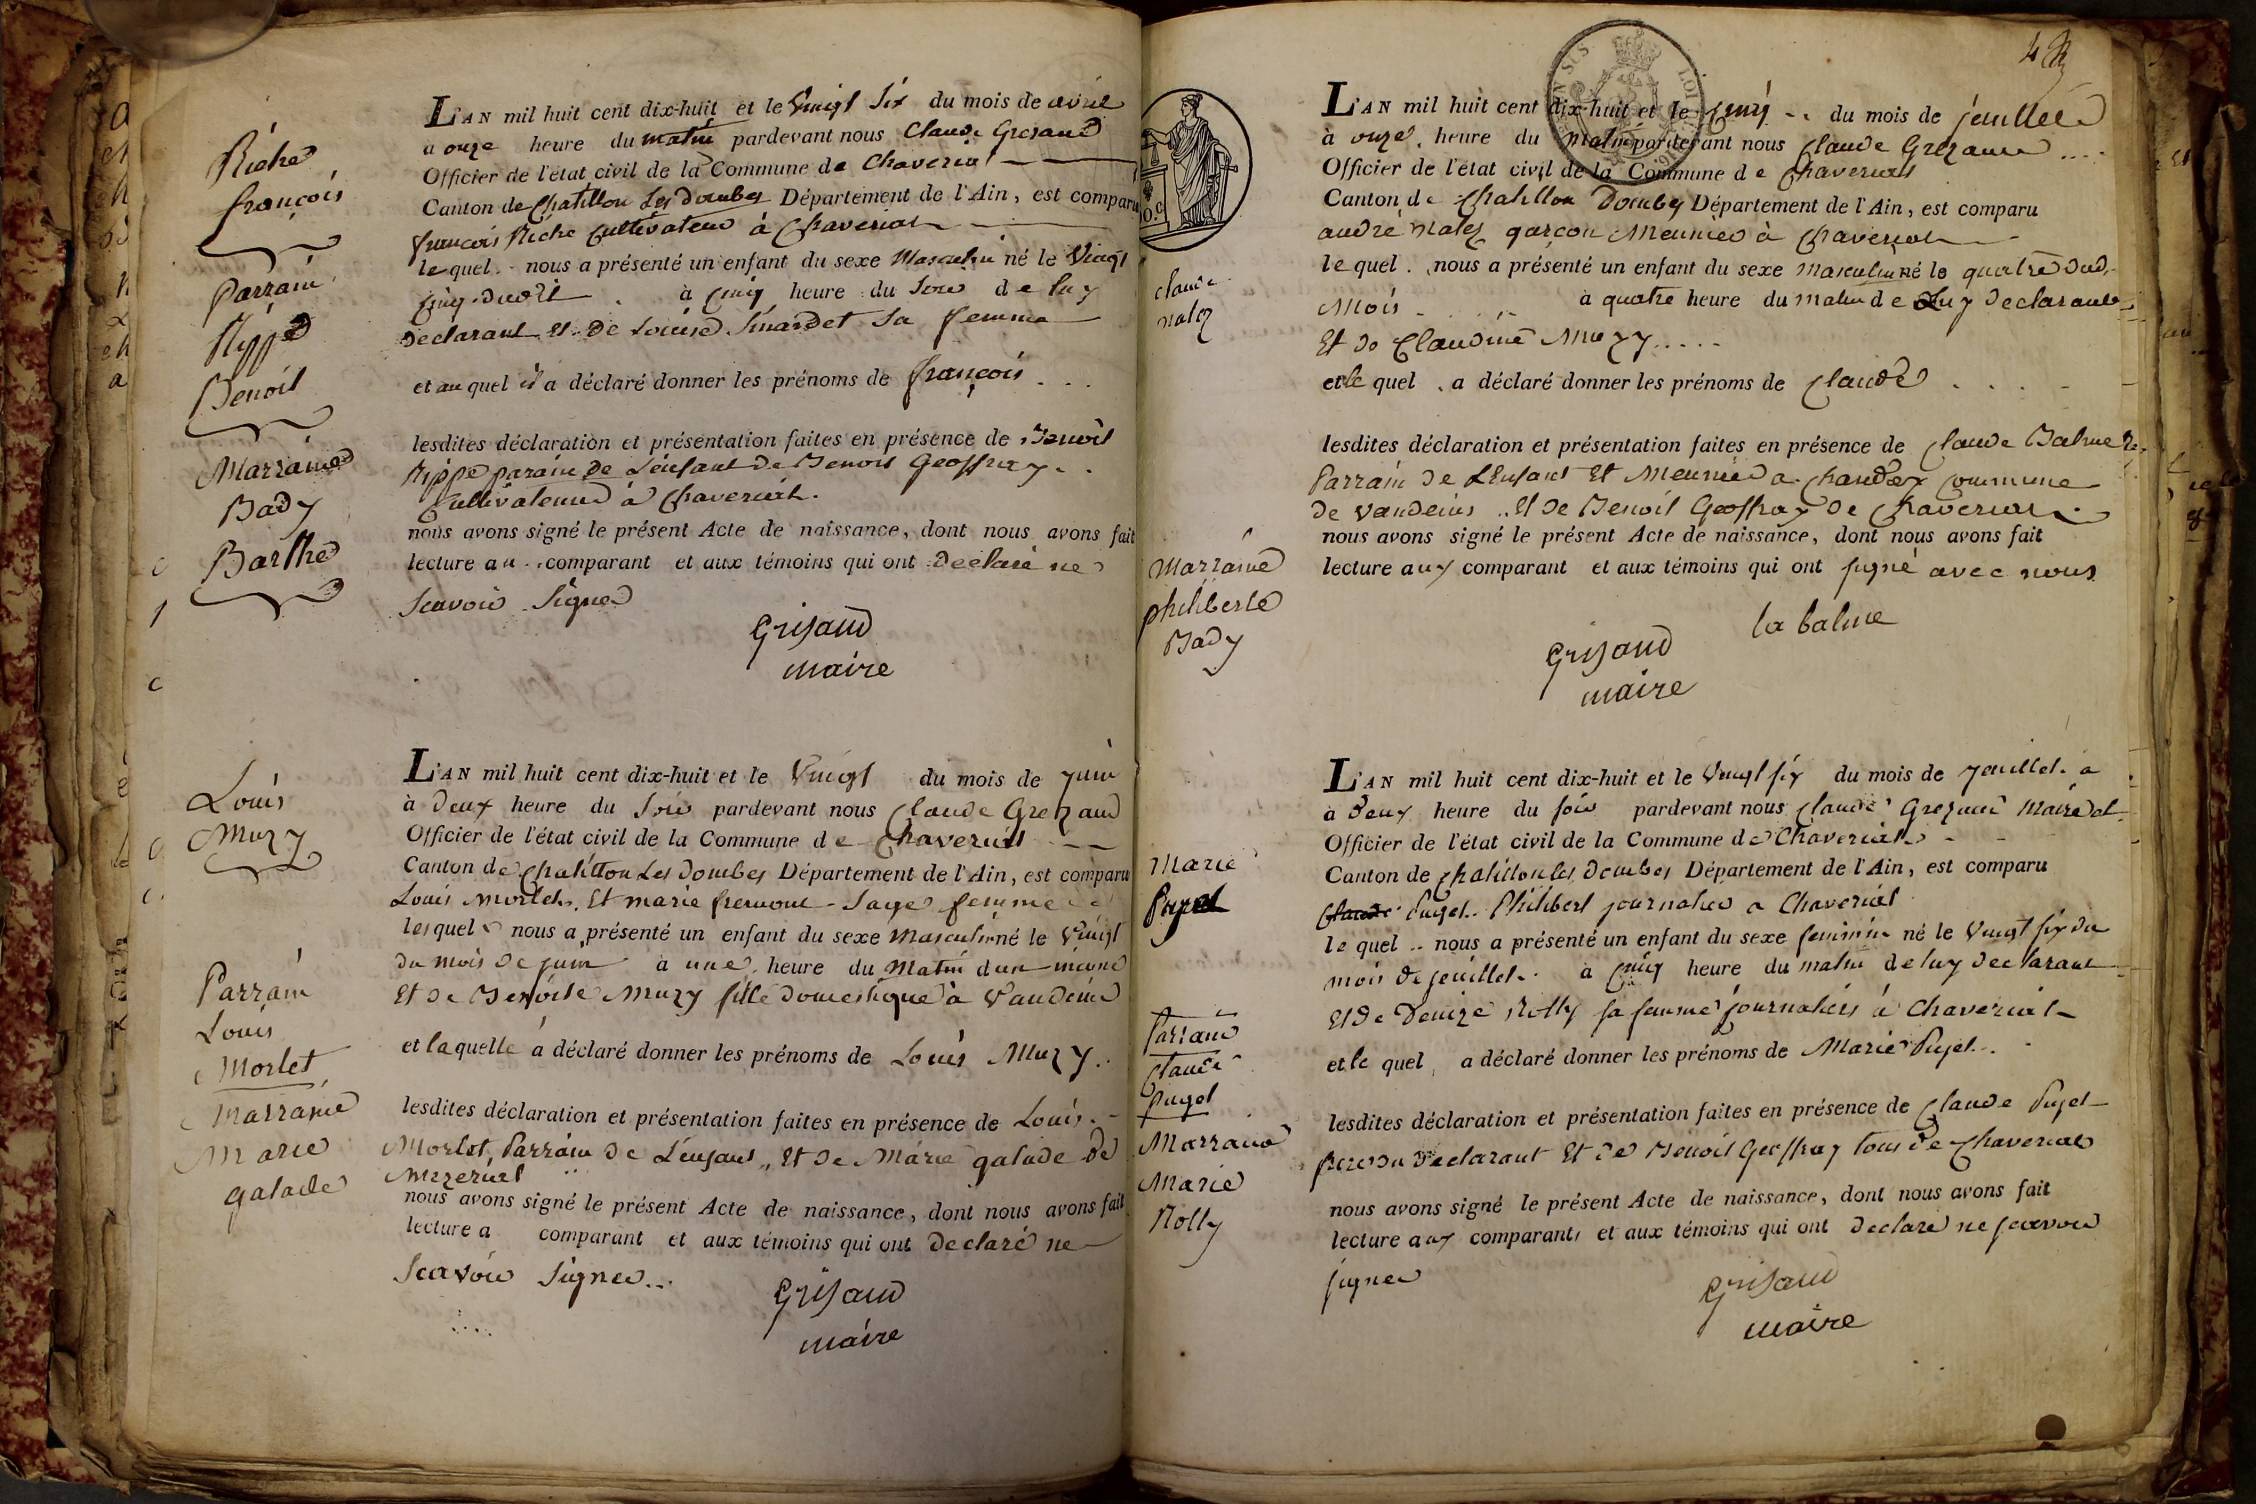 Riche
françois
Parrain
Rippe
Benoit
Marraine
Bady
Barthe
L'AN mil huit cent dix-huit et le Vingt Six du mois de avril
a onze heure du matin pardevant nous Claude Gresaud
Officier de l'état civil de la Commune de Chaveriat
Canton de Chatillon Les Dombes Département de l'Ain, est comparu
françois Riche Cultivateur à Chaveriat
lequel nous a présenté un enfant du sexe Masculin né le Vingt
Cinq dudit à Cinq heure du Soir de luy
declarant Et de Louise Sinardet Sa femme
et au quel il a déclaré donner les prénoms de françois
lesdites déclaration et présentation faites en présence de Benoit
Rippe parain de L'enfant de Benoit Geoffray
Cultivateurs à Chaveriat.
nous avons signé le présent Acte de naissance, dont nous avons fait
lecture au comparant et aux témoins qui ont Declaré ne
Scavoir Signer
Grisaud
maire
Louis
Muzy
Parrain
Louis
Morlet
Marraine
Marie
galade
L'AN mil huit cent dix-huit et le Vingt du mois de juin
à Deux heure du Soir pardevant nous Claude Grezaud
Officier de l'état civil de la Commune de Chaveriat
Canton de Chatillon Les Dombes Département de l'Ain, est comparu
Louis Morlet, Et marie fremont Sage femme
lesquel nous a présenté un enfant du sexe Masculin né le Vingt
du mois de juin à une heure du Matin d'un
Et de Benoite Muzy fille domestique à Vandeins
et laquelle a déclaré donner les prénoms de Louis Muzy.
lesdites déclaration et présentation faites en présence de Louis
Morlet, Parrain de L'enfant, Et de Marie galade de
Mezeriat
nous avons signé le présent Acte de naissance, dont nous avons fait
lecture a comparant et aux témoins qui ont Declaré ne
Scavoir Signer
Grisaud
maire
4
claude
natez
Marraine
philiberte
Bady
L'AN mil huit cent dix-huit et le Cinq du mois de jeuillet
à onze heure du Matin pardevant nous Claude Grezaud
Officier de l'état civil de la Commune de Chaveriat
Canton de Chatillon Dombes Département de l'Ain, est comparu
andré natez garçon Meunier à Chaveriat
lequel nous a présenté un enfant du sexe masculin né le quatre dud.
Mois à quatre heure du matin de Luy Declarant
Et de Claudine Muzy
et le quel a déclaré donner les prénoms de Claude
lesdites déclaration et présentation faites en présence de Claude Balme
Parrain de L'Enfant Et Meunier a Chandée Commune
de Vandeins Et de Benoit Geoffray de Chaveriat
nous avons signé le présent Acte de naissance, dont nous avons fait
lecture aux comparant et aux témoins qui ont signé avec nous
la balme
Grisaud
maire
Marie
Pugel
Parrain
Claude
Pugel
Marraine
Marie
Rolly
L'AN mil huit cent dix-huit et le Vingt six du mois de jeuillet a
à Deux heure du soir pardevant nous Claude Grezaud Maire et
Officier de l'état civil de la Commune de Chaveriat
Canton de Chatillon les Dombes Département de l'Ain, est comparu
Claude Pugel Philibert journalier a Chaveriat
le quel nous a présenté un enfant du sexe feminin né le Vingt six du
mois de jeuillet à Cinq heure du matin de luy declarant
Et de Denize Rolly sa femme journaliers à Chaveriat
et le quel a déclaré donner les prénoms de Marie Pugel
lesdites déclaration et présentation faites en présence de Claude Pugel
frere du Declarant Et de Benoit Geoffray tous de Chaveriat
nous avons signé le présent Acte de naissance, dont nous avons fait
lecture aux comparants et aux témoins qui ont Declaré ne scavoir
signer
Grisaud
maire